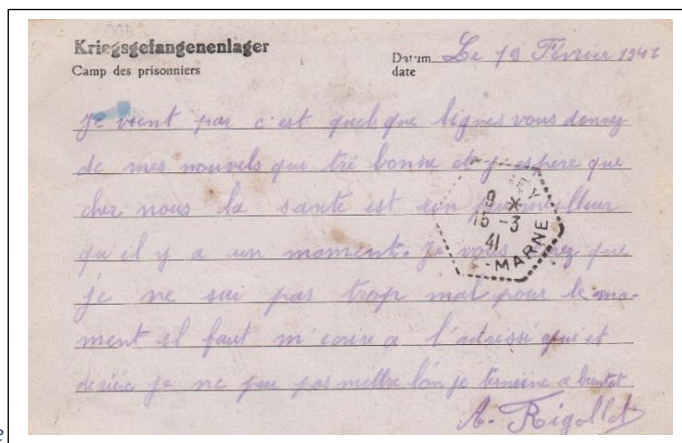 Kriegsgefangenenlager
Camp des prisonniers
Datum
date
Le 19 Février 1941
Je vient par c'est quelque lignes vous donney
de mes nouvels qui tré bonne et j'espere que
cher nous la santé est un peu meilleur
qu'il y a un moment. Je vous que
je ne sui pas trop mal pour le mo-
ment il faut m'ecrire a l'adresse qui et
je ne peu pas mettre loin je termine a bientot
A. Rigollot
9 *
15 -3
41
MARNE
e